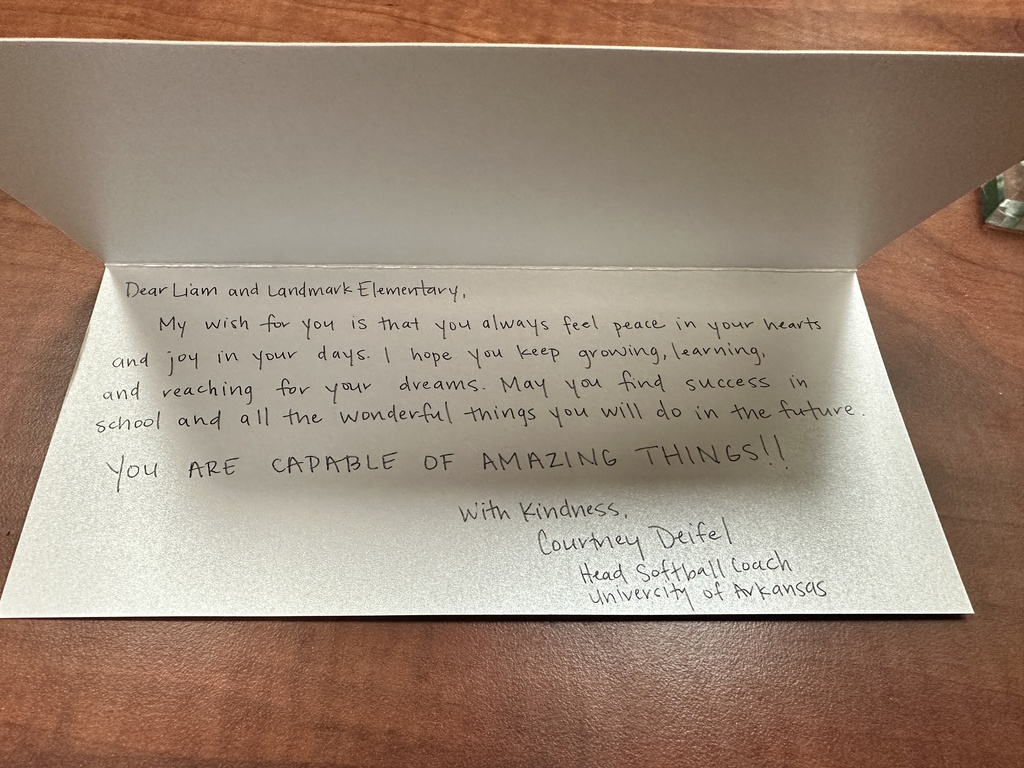 Dear Liam and Landmark Elementary,
My wish for you is that you always feel peace in your hearts
and joy in your days. I hope you keep growing, learning,
and reaching for your dreams. May you find success in
school and all the wonderful things you will do in the future.
YOU ARE CAPABLE OF AMAZING THINGS!!
With Kindness,
Courtney Deifel
Head Softball Coach
University of Arkansas